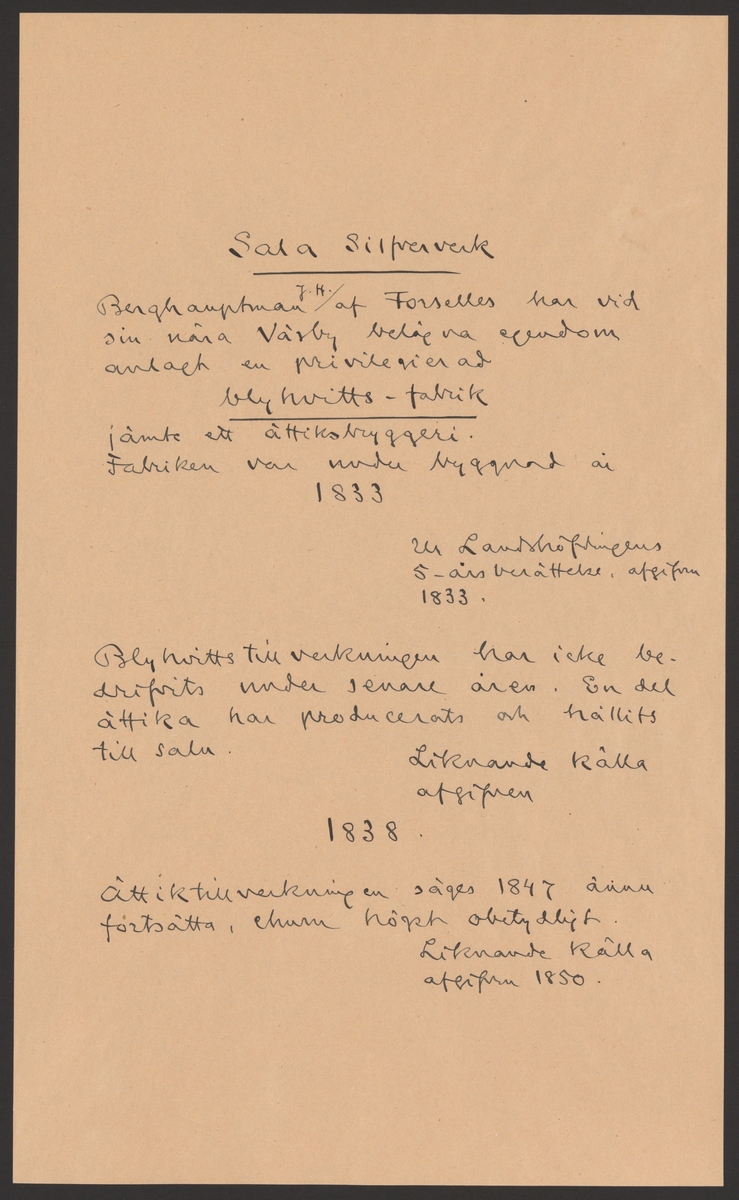 Sala Silfververk
Berghauptman J. H. af Forselles har vid
sin nära Väsby belägna egendom
anlagt en privilegierad
blyhvitts-fabrik
jämte ett ättiksbryggeri.
Fabriken var under byggnad år
1833
Ur Landshöfdingens
5-årsberättelse, afgifven
1833.
Blyhvittstillverkningen har icke be-
drifvits under senare åren. En del
ättika har producerats och hållits
till salu.
Liknande källa
afgifven
1838.
Ättiktillverkningen säges 1847 ännu
fortsätta, ehuru högst obetydligt.
Liknande källa
afgifven 1850.